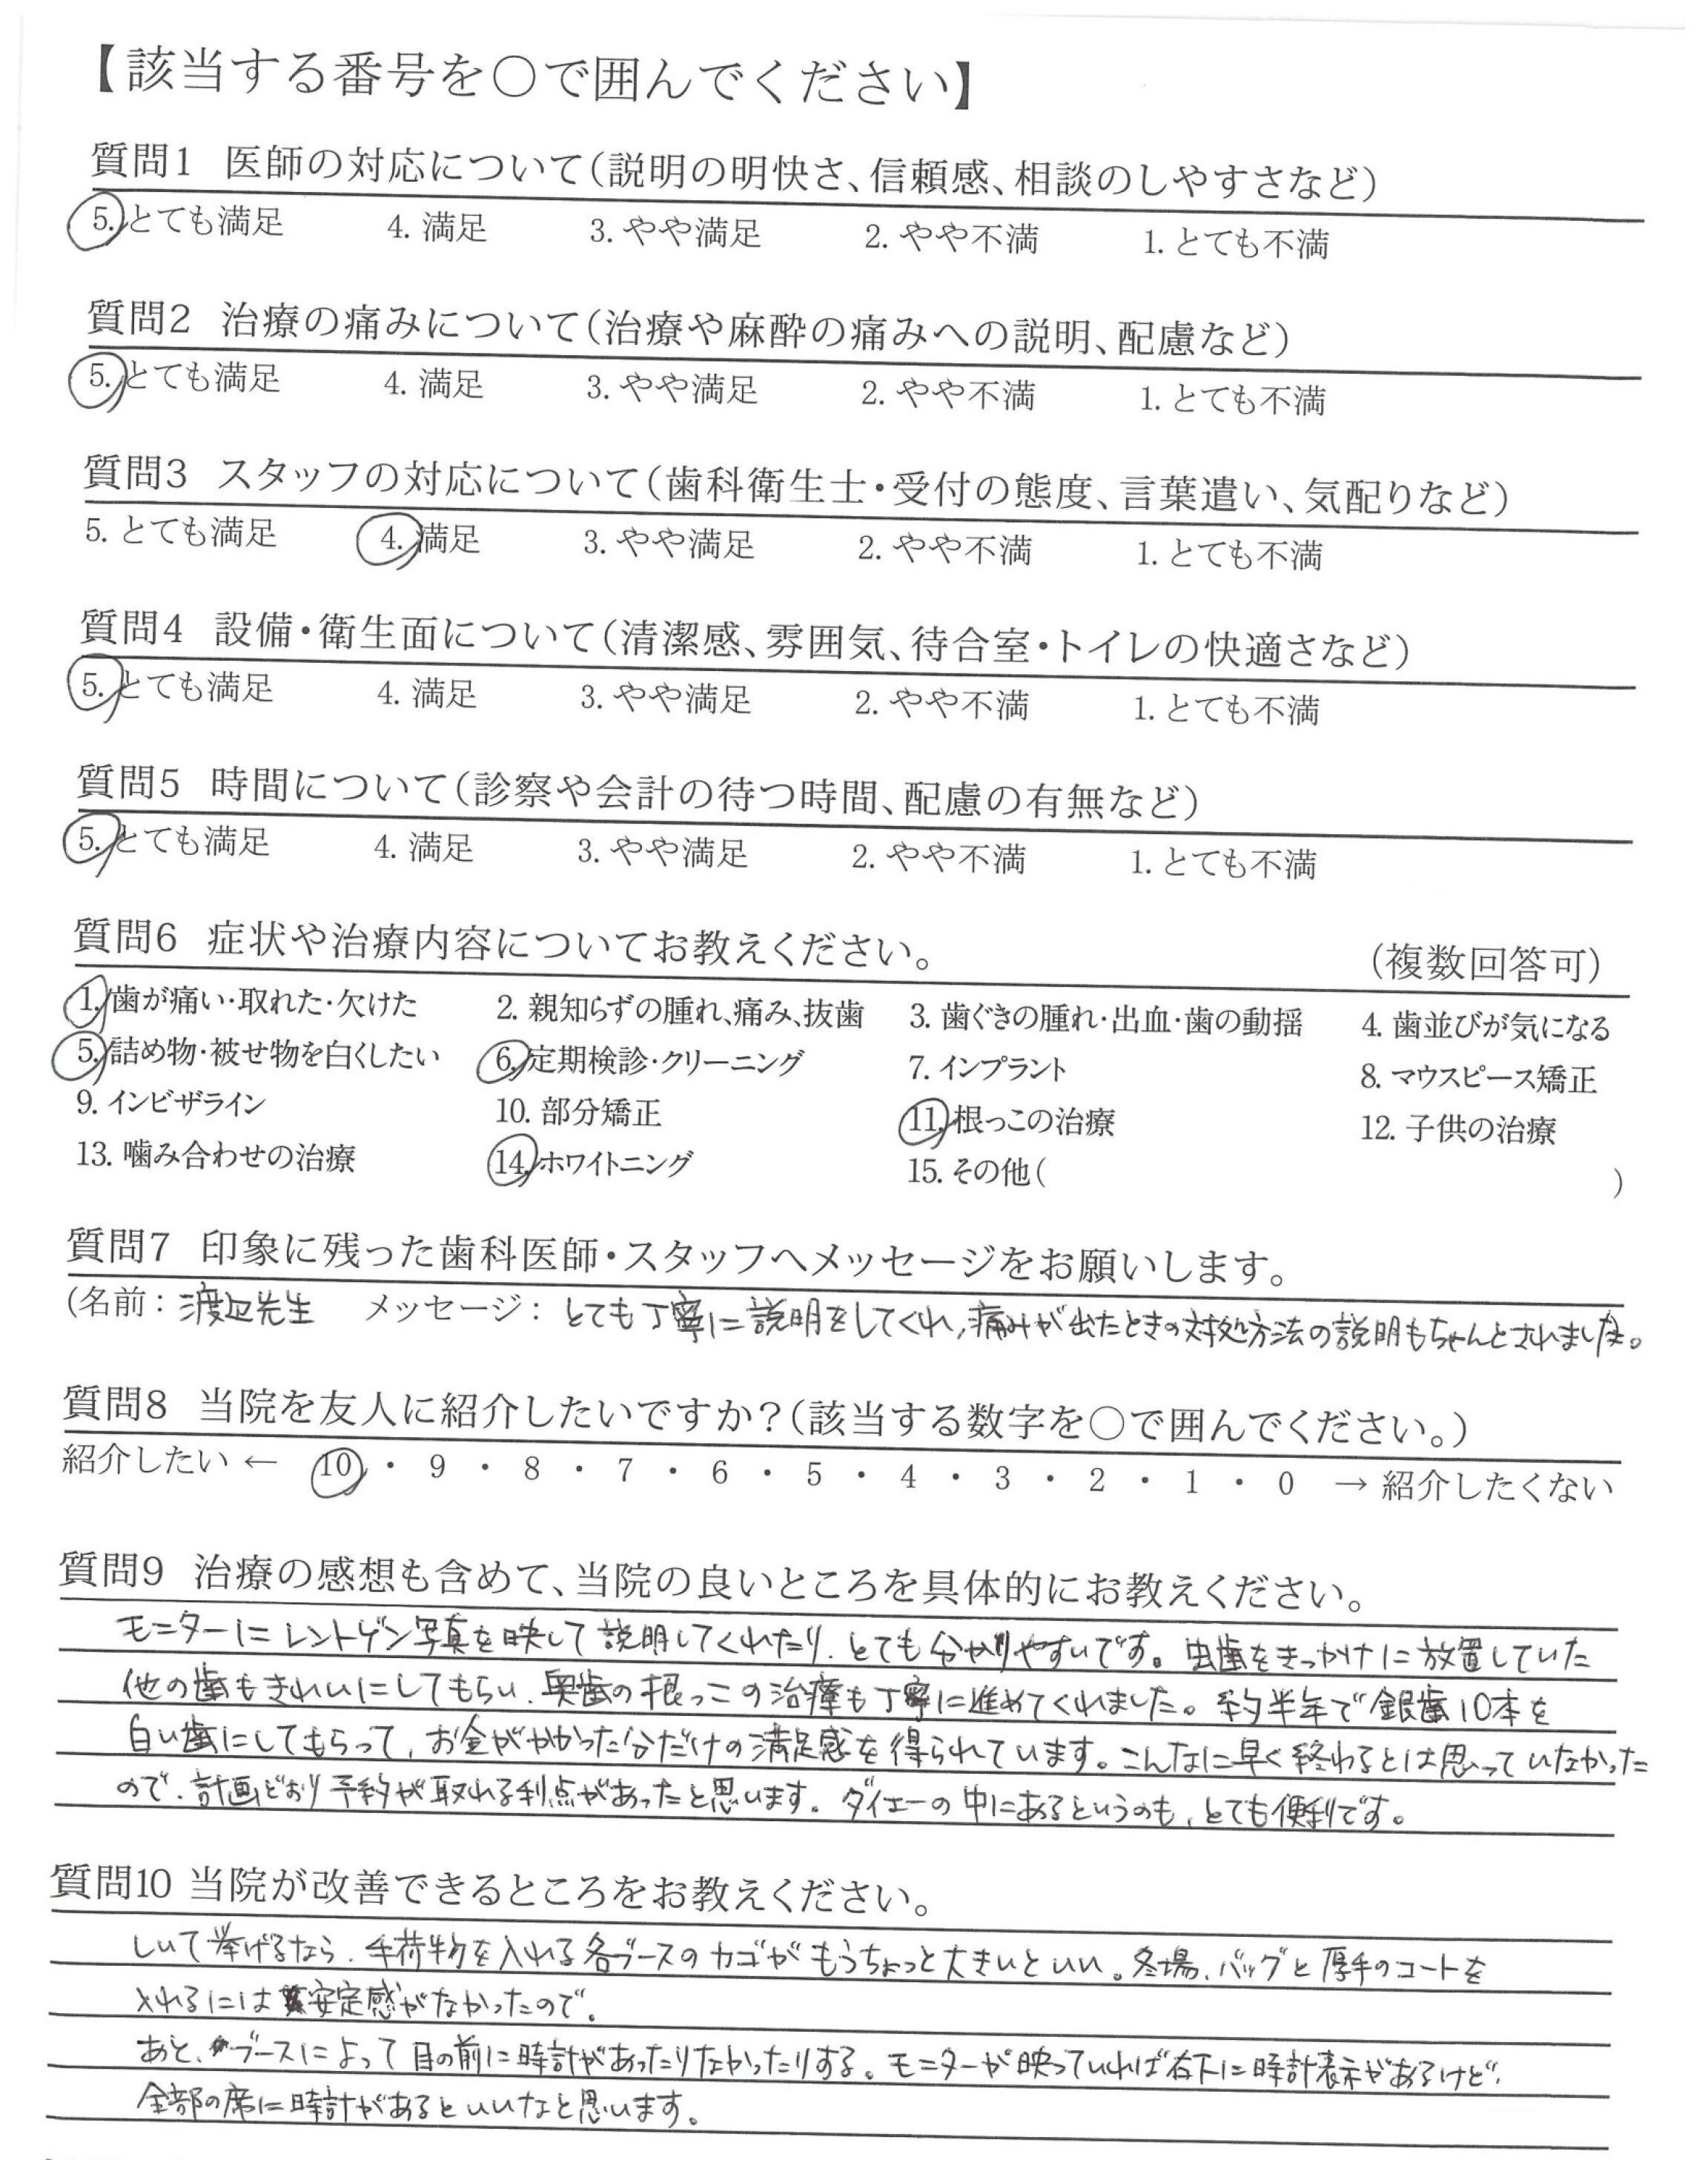 【該当する番号を○で囲んでください】
質問1 医師の対応について(説明の明快さ、信頼感、相談のしやすさなど)
5. とても満足 4. 満足 3. やや満足 2. やや不満 1. とても不満
質問2 治療の痛みについて(治療や麻酔の痛みへの説明、配慮など)
5. とても満足 4. 満足 3. やや満足 2. やや不満 1. とても不満
質問3 スタッフの対応について(歯科衛生士・受付の態度、言葉遣い、気配りなど)
5. とても満足 4. 満足 3. やや満足 2. やや不満 1. とても不満
質問4 設備・衛生面について(清潔感、雰囲気、待合室・トイレの快適さなど)
5. とても満足 4. 満足 3. やや満足 2. やや不満 1. とても不満
質問5 時間について(診察や会計の待つ時間、配慮の有無など)
5. とても満足 4. 満足 3. やや満足 2. やや不満 1. とても不満
質問6 症状や治療内容についてお教えください。 (複数回答可)
1. 歯が痛い・取れた・欠けた 2. 親知らずの腫れ、痛み、抜歯 3. 歯ぐきの腫れ・出血・歯の動揺 4. 歯並びが気になる
5. 詰め物・被せ物を白くしたい 6. 定期検診・クリーニング 7. インプラント 8. マウスピース矯正
9. インビザライン 10. 部分矯正 11. 根っこの治療 12. 子供の治療
13. 噛み合わせの治療 14. ホワイトニング 15. その他( )
質問7 印象に残った歯科医師・スタッフへメッセージをお願いします。
(名前：渡辺先生 メッセージ：とても丁寧に説明をしてくれ、痛みが出たときの対処方法の説明もちゃんとされました。
質問8 当院を友人に紹介したいですか？(該当する数字を○で囲んでください。)
紹介したい ← 10 ・ 9 ・ 8 ・ 7 ・ 6 ・ 5 ・ 4 ・ 3 ・ 2 ・ 1 ・ 0 → 紹介したくない
質問9 治療の感想も含めて、当院の良いところを具体的にお教えください。
モニターにレントゲン写真を映して説明してくれたり、とても分かりやすいです。虫歯をきっかけに放置していた
他の歯もきれいにしてもらい、奥歯の根っこの治療も丁寧に進めてくれました。約半年で銀歯10本を
白い歯にしてもらって、お金がかかった分だけの満足感を得られています。こんなに早く終わるとは思っていなかった
ので、計画どおり予約が取れる利点があったと思います。ダイエーの中にあるというのも、とても便利です。
質問10 当院が改善できるところをお教えください。
しいて挙げるなら、手荷物を入れる各ブースのカゴがもうちょっと大きいといい。冬場、バッグと厚手のコートを
入れるには安定感がなかったので。
あと、ブースによって目の前に時計があったりなかったりする。モニターが映っていれば右下に時計表示があるけど、
全部の席に時計があるといいなと思います。